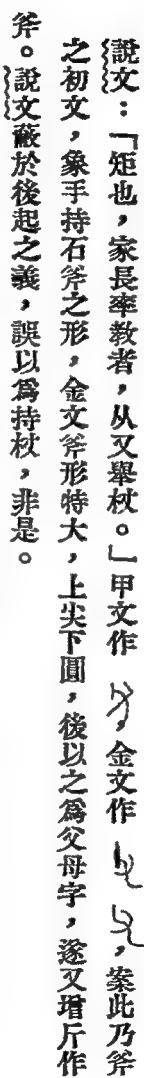 說文：「矩也，家長率教者，从又舉杖。」甲文作，金文作，案此乃斧
之初文，象手持石斧之形，金文斧形特大，上尖下圓，後以之爲父母字，遂又增斤作
斧。說文蔽於後起之義，誤以爲持杖，非是。